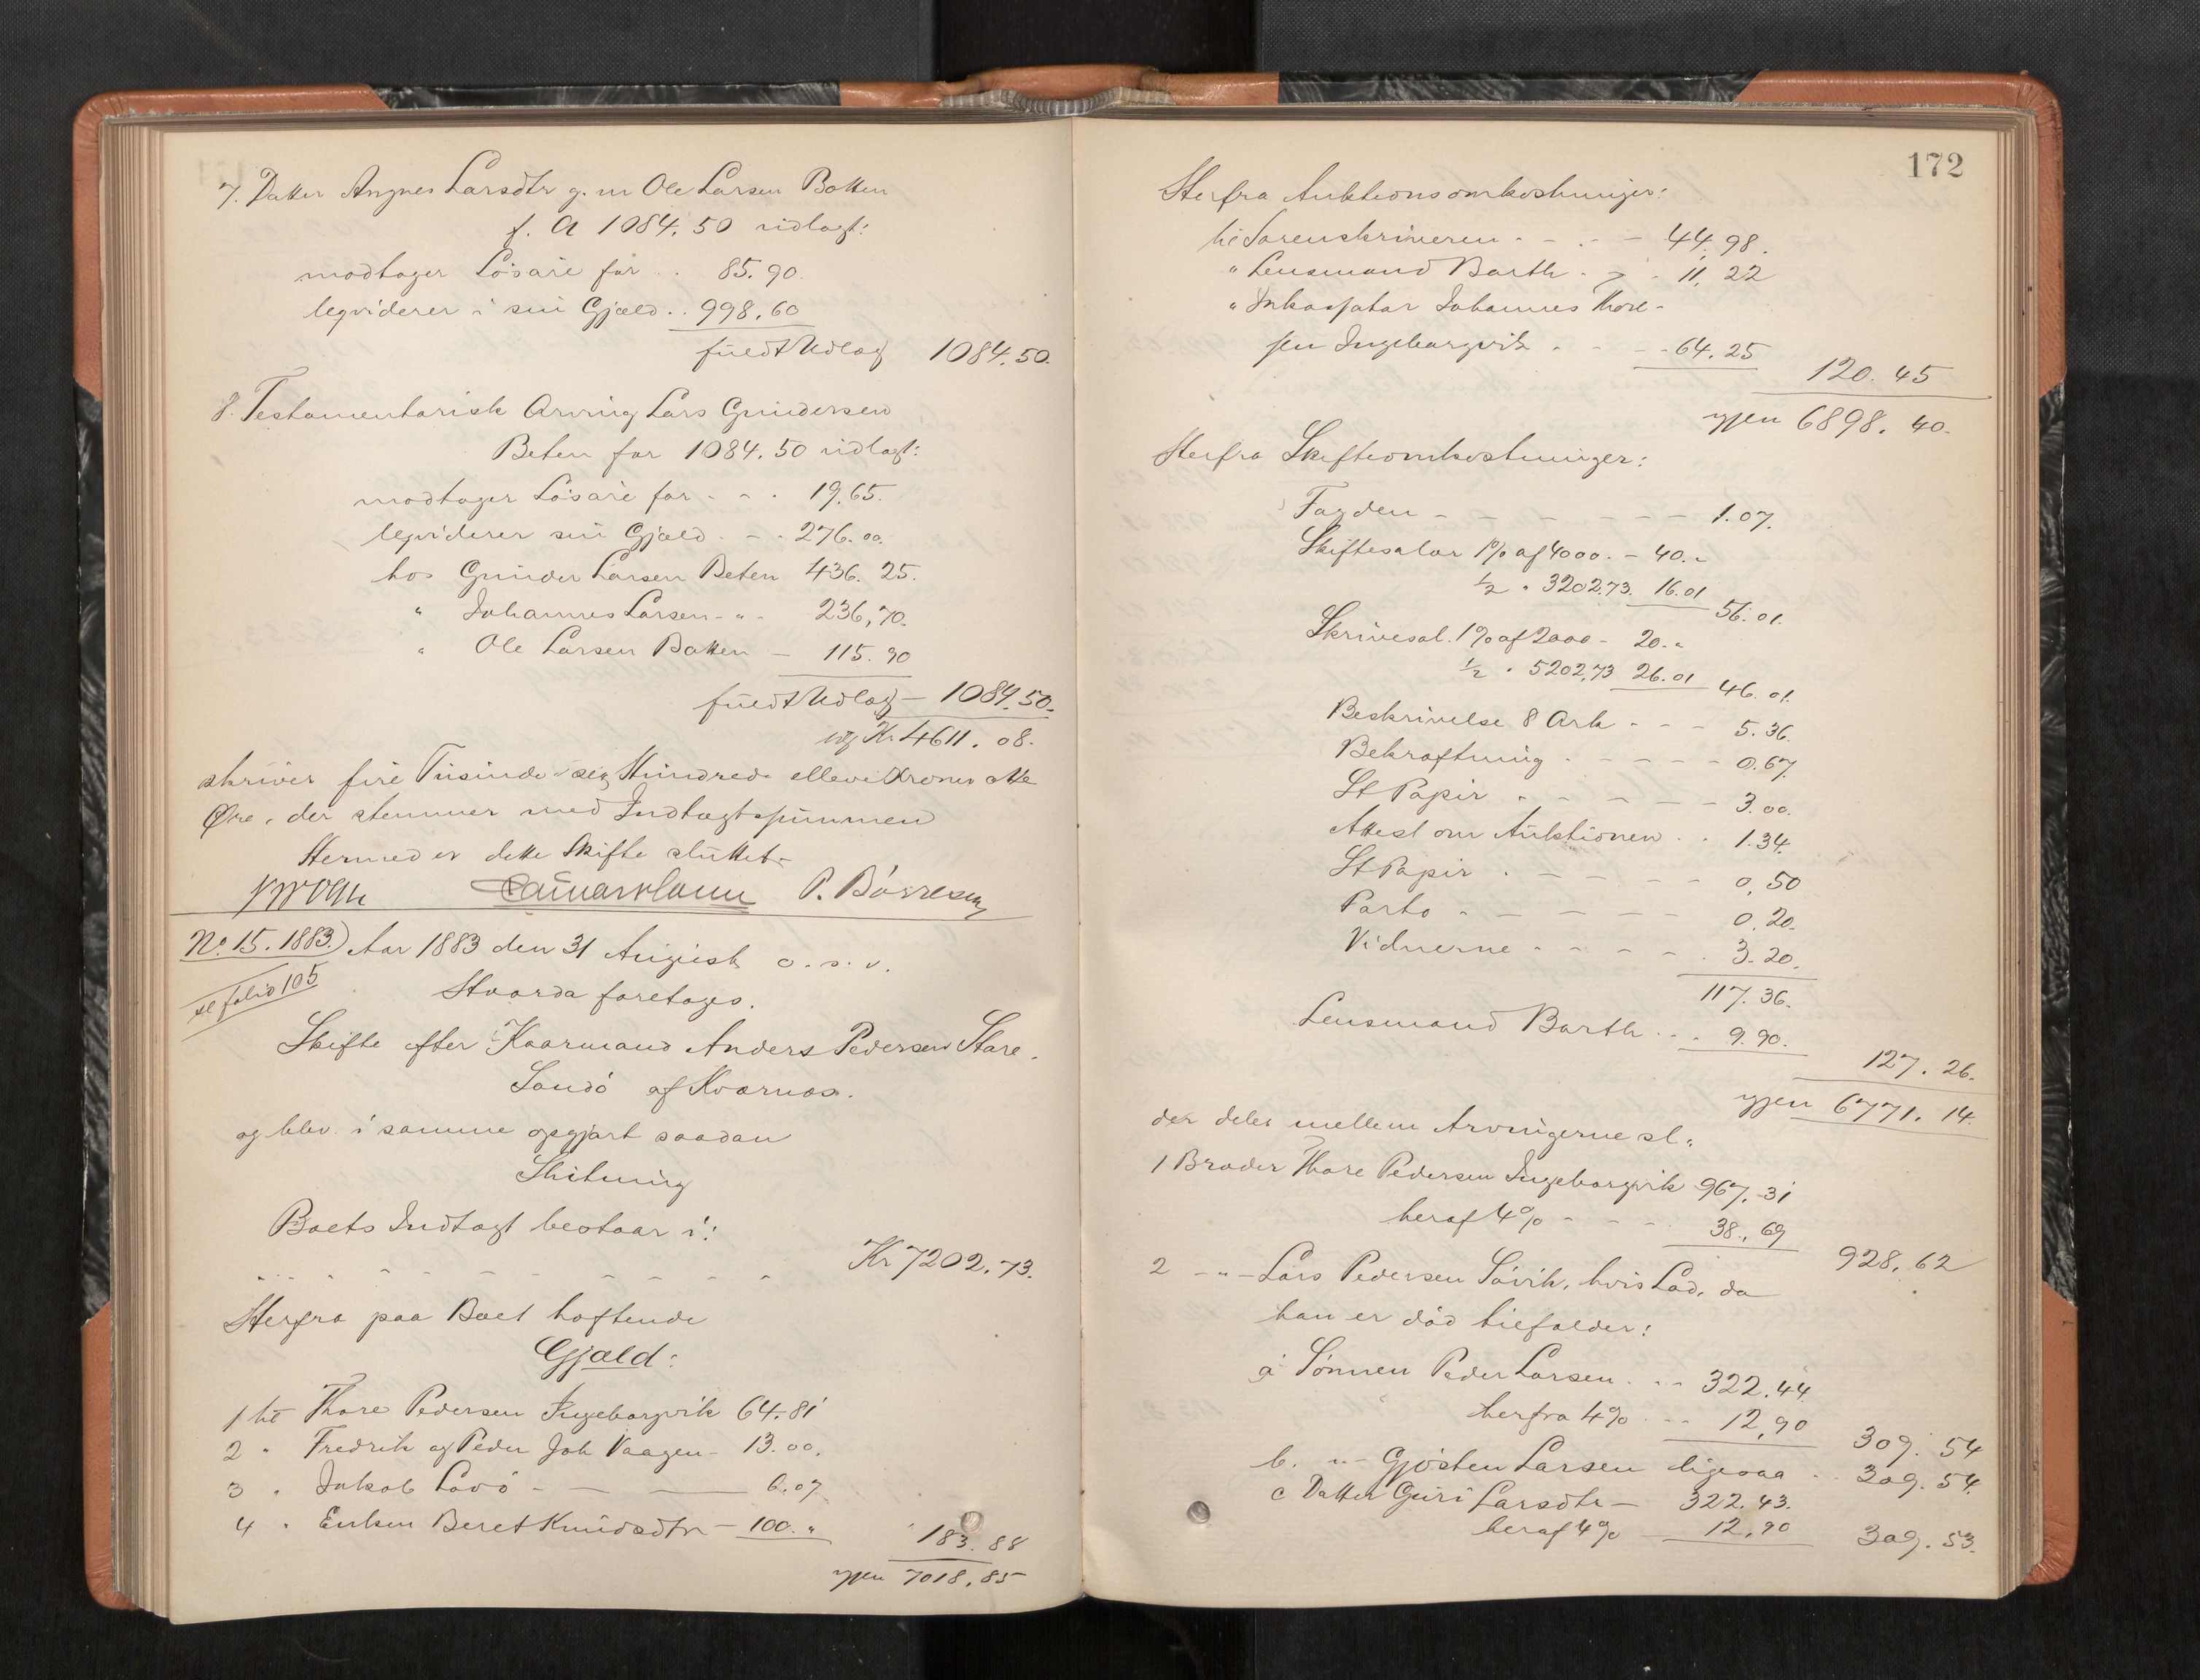 7. Datter Angnes Larsdtr g. m Ole Larsen Botten
f. A 1084. 50 udlagt:
modtager Lösøre for . . 85. 90.
leqviderer i sin Gjæld . . 998. 60
fuldt Udlag 1084. 50.
8. Testamentarisk Arving Lars Gundersen
Beten for 1084. 50 udlagt:
modtager Lösøre for - - . 19. 65.
leqviderer sin Gjæld . - . 276. 00.
hos Gunder Larsen Beten 436. 25.
" Johannes Larsen - " - 236, 70.
" Ole Larsen Botten - 115. 90
fuldt Udlag - 1084. 50.
Kr 4611. 08.
skriver fire Tusinde sex Hundrede elleve Kroner otte
Øre, der stemmer med Indtægtssummen
Hermed er dette Skifte sluttet.
P. Börresen
No. 15. 1883.) Aar 1883 den 31 August o. s. v.
se folio 105
Stvarda foretoges.
Skifte efter Kaarmand Anders Pedersen Stare
Sandö af Kvarnæs.
og blev i samme opgjørt saadan
Slutning
Boets Indtægt bestaar i:
. . . - - - - - - - - Kr 7202. 73.
Herfra paa Boet heftende
Gjæld:
1 til Thore Pedersen Ingeborgvik 64. 81
2 " Fredrik og Peder Joh Vaagen - 13. 00.
3 " Jakob Lovö - - - 6. 07
4 " Enken Beret Knudsdtr - 100. "
183. 88
igjen 7018. 85
172
Herfra Auktionsomkostninger:
til Sorenskriveren - - . - - 44. 98.
" Lensmand Barth . - - 11, 22
" Inkassator Johannes Thore-
sen Ingeborgvik . - - 64. 25
120. 45
igjen 6898. 40.
Herfra Skifteomkostninger:
Fogden - - - - - - - 1. 07.
Skiftesalær 1% af 4000. - 40. "
1/2 " 3202.73. 16. 01
56. 01.
Skrivesal. 1% af 2000 - 20. "
1/2 " 5202,73 26. 01
46. 01.
Beskrivelse 8 Ark - - - 5. 36.
Bekræftning . - - - - 0. 67.
St Papir - - - - - - 3. 00.
Attest om Auktionen . . 1. 34.
St Papir . - - - - - 0, 50
Porto - - - - - - 0, 20.
Vidnerne - - - - . 3. 20.
117. 36.
Lensmand Barth . . 9. 90.
127. 26.
igjen 6771. 14.
der deles mellem Arvingerne sl.
1 Broder Thore Pedersen Ingeborgvik 967. 31
heraf 4% - - - . 38., 69
928. 62
2 - " - Lars Pedersen Sövik, hvis Lod, da
han er död tilfalder:
a Sönnen Peder Larsen . . - 322. 44
herfra 4% . . - 12, 90
309. 54
b. - " - Gjösten Larsen ligesaa . . 309. 54.
c Datter Guri Larsdtr - 322. 43.
heraf 4% 12, 90
309. 53.